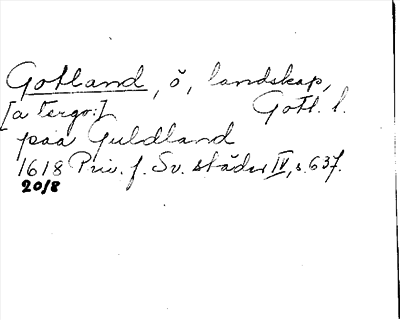 Gotland, ö, landskap,
[a tergo:] Gotl. l.
paa Guldland
1618 Priv. f. Sv. städer IV, s. 637.
20/8